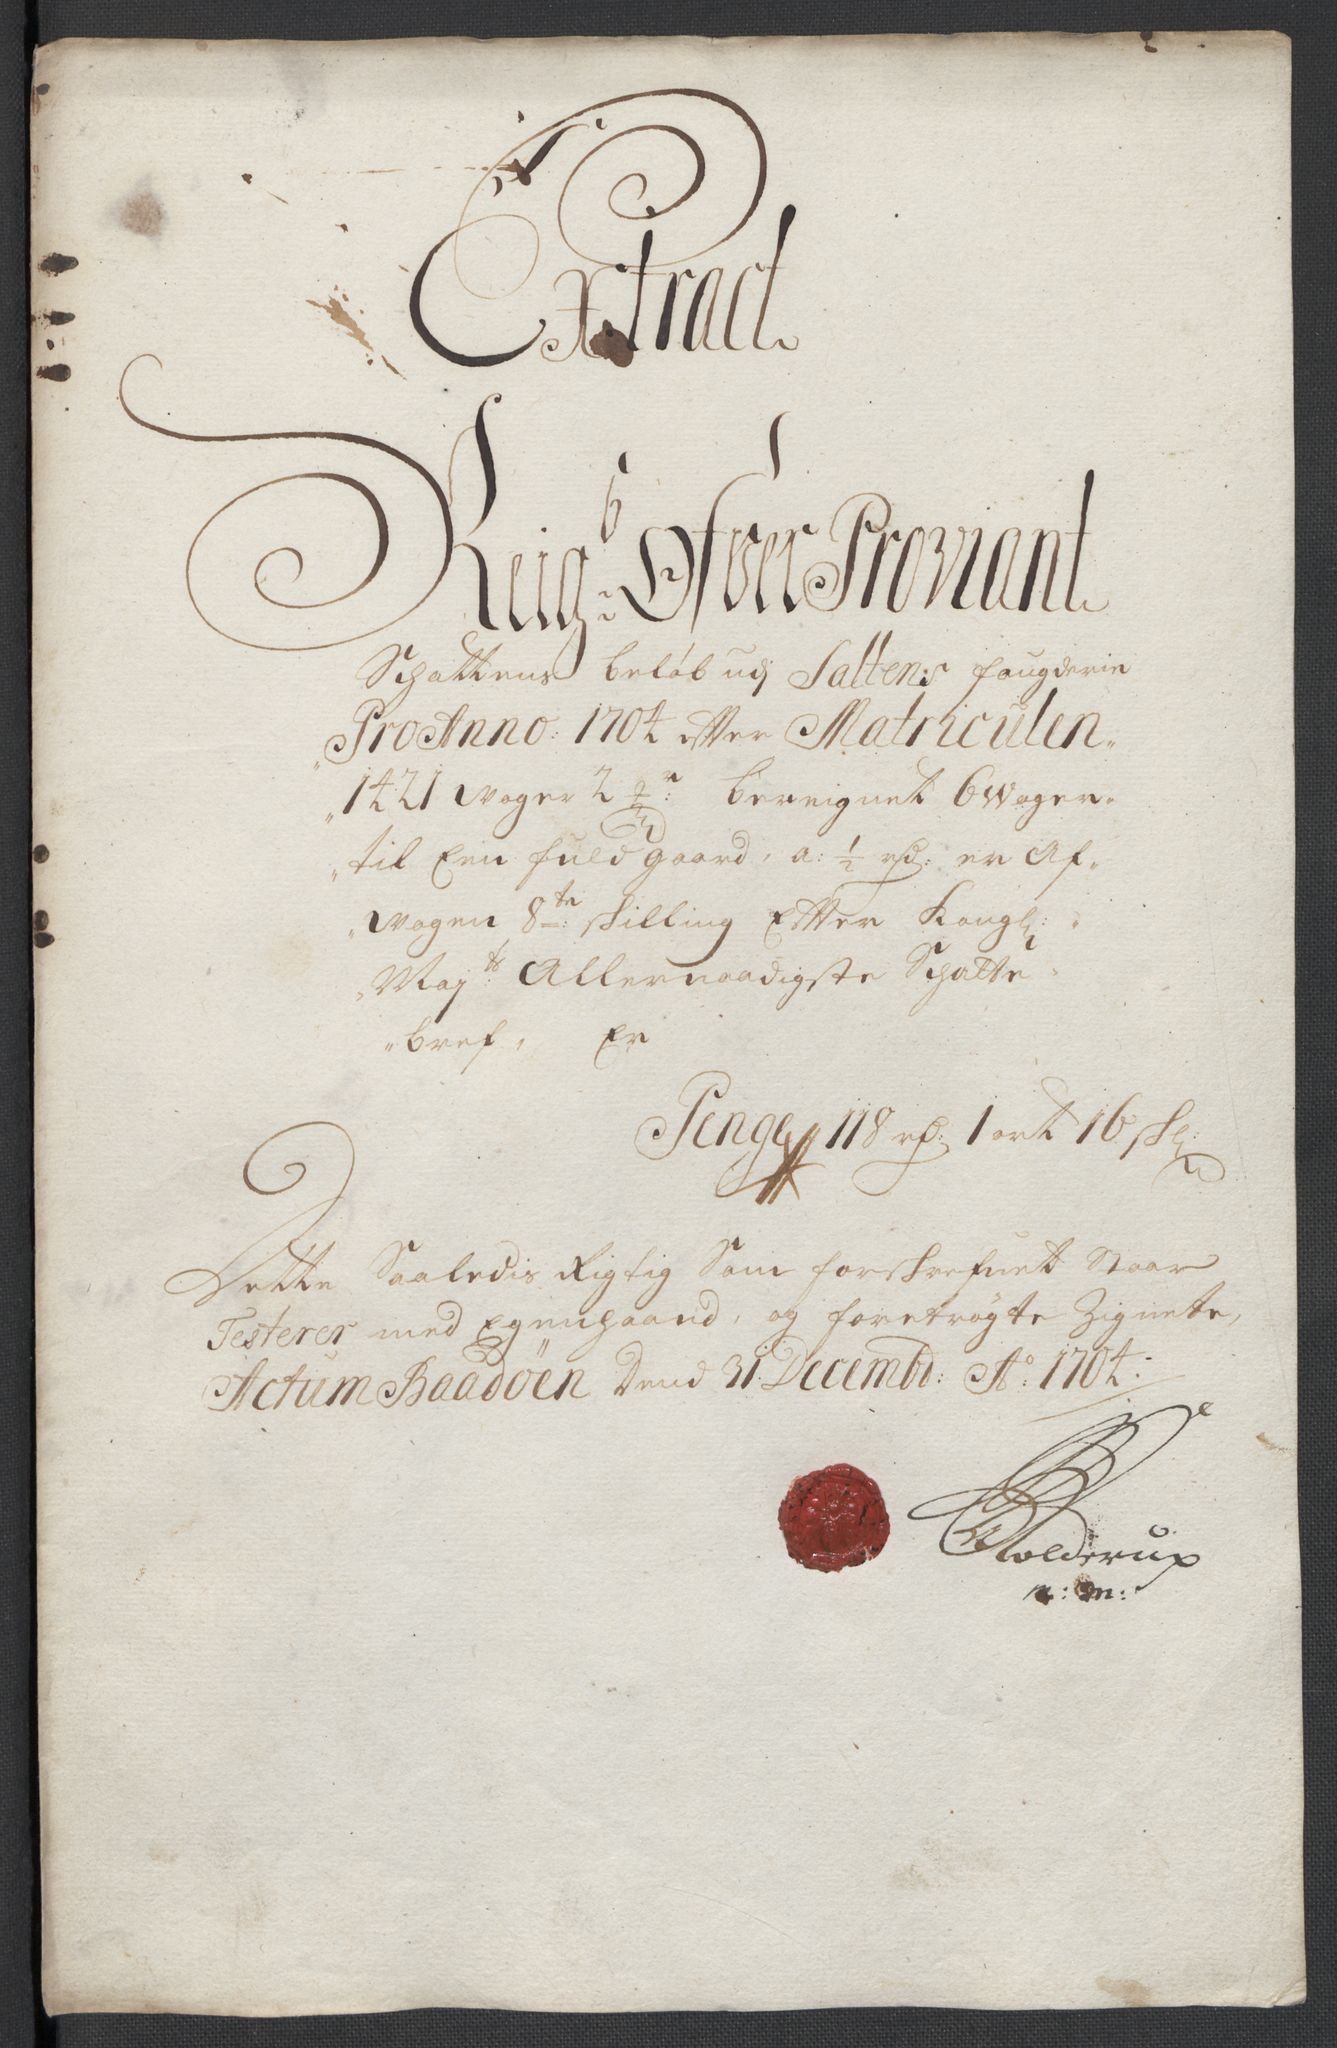 Extract
Reigb: Ofver Proviant
Schattens beløb udj Saltens fougderie
Pro Anno: 1704 efter Matriculen
1421 woger 2 bereignet 6 woger
til Een fuld gaard, a: ½ rd: er Af
wogen 8te: skilling Efter Kongl:
Majts: Allernaadigste Schatte
bref, Er
Penge 118 rd: 1 ort 16 sk
Dette Saaledis Rigtig Som forskrefuet Staar
Testerer med Egenhaand, og foretrøgte Zignete,
Actum Baadöen Dend 31. Decembr: Ao: 1704:
Holderup
m: